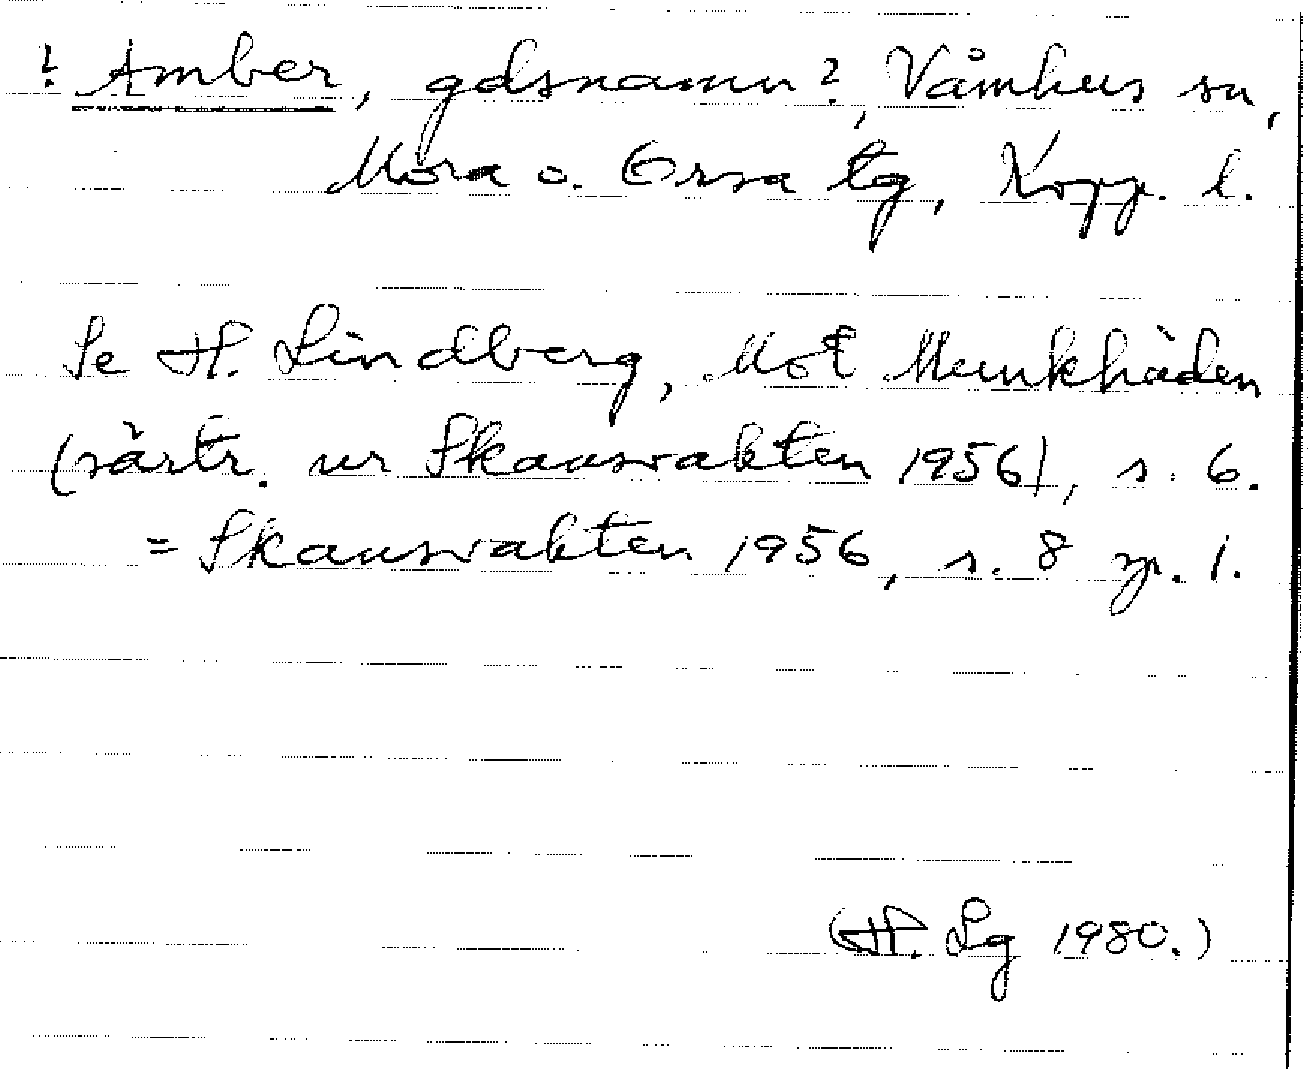 ? Amber, gdsnamn?, Våmhus sn,
Mora o. Orsa tg, Kopp. l.
Se H. Lindberg, Mot Munkhäden
(särtr. ur Skansvakten 1956), s. 6.
= Skansvakten 1956, s. 8 sp. 1.
(H. Lg 1980.)